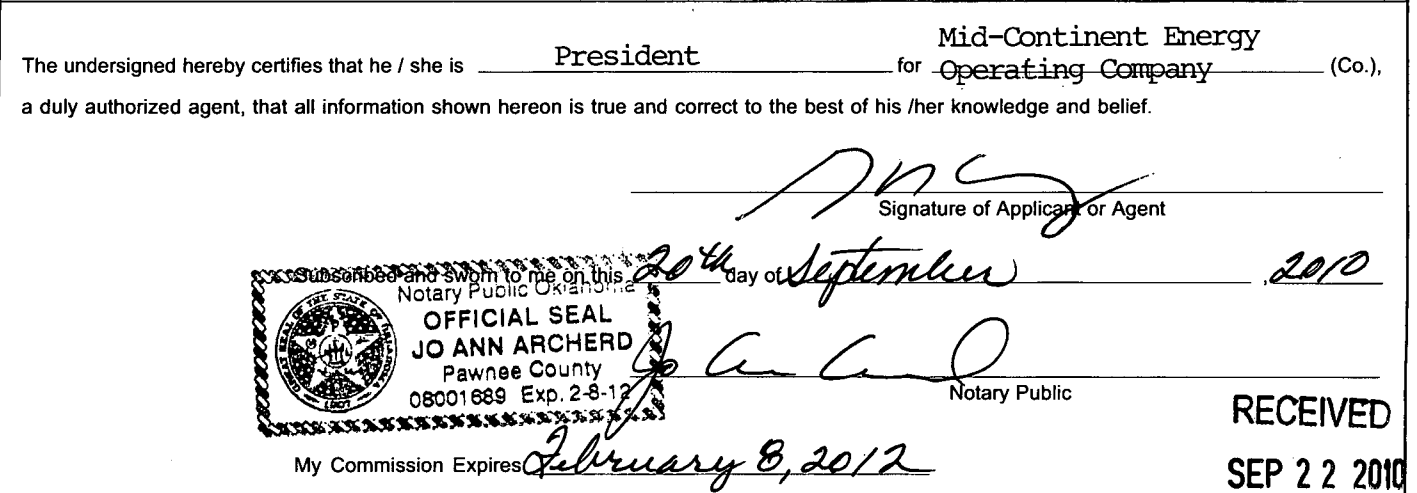 Mid-Continent Energy
The undersigned hereby certifies that he / she is President for Operating Company (Co.),
a duly authorized agent, that all information shown hereon is true and correct to the best of his /her knowledge and belief.
Signature of Applicant or Agent
Subscribed and sworn to me on this 20th day of September ,2010
Notary Public Oklahoma
OFFICIAL SEAL
JO ANN ARCHERD
Pawnee County
08001689 Exp. 2-8-12
Jo Ann Archerd
Notary Public
RECEIVED
My Commission Expires February 8, 2012
SEP 22 2010
GREAT SEAL OF THE STATE OF OKLAHOMA
1907